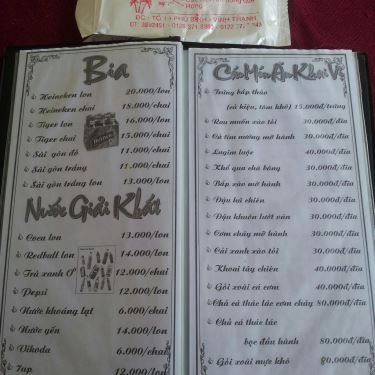 ĐC : TỔ 17 PHÚ BÌNH - VĨNH THẠNH
Bia
Heineken lon 20.000/lon
Heineken chai 18.000/chai
Tiger lon 16.000/lon
Tiger chai 15.000/chai
Sài gòn đỏ 11.000/chai
Sài gòn trắng 11.000/chai
Sài gòn trắng lon 13.000/lon
Nước Giải Khát
Coca lon 13.000/lon
Redbull lon 14.000/lon
Trà xanh O° 12.000/chai
Pepsi 12.000/lon
Nước khoáng lạt 6.000/chai
Nước yến 14.000/lon
Vikoda 6.000/chai
7up 12.000/lon
Các Món Ăn Khai Vị
Trứng bắp thảo
(củ kiệu, tôm khô) 15,000đ/trứng
Rau muống xào tỏi 30.000đ/dĩa
Cà tím nướng mỡ hành 30.000đ/dĩa
Lagim luộc 40.000đ/dĩa
Khổ qua chà bông 30.000đ/dĩa
Bắp xào mỡ hành 30.000đ/dĩa
Đậu hủ chiên 30.000đ/dĩa
Đậu khuôn lướt ván 30.000đ/dĩa
Cơm cháy mỡ hành 30.000đ/dĩa
Cải xanh xào tỏi 30.000đ/dĩa
Khoai tây chiên 40.000đ/dĩa
Gỏi xoài cá cơm 40.000đ/dĩa
Chả cá thác lác cơm cháy 80.000đ/dĩa
Chả cá thác lác
bọc đầu hành 80.000đ/dĩa
Gỏi xoài mực khô 80.000đ/dĩa